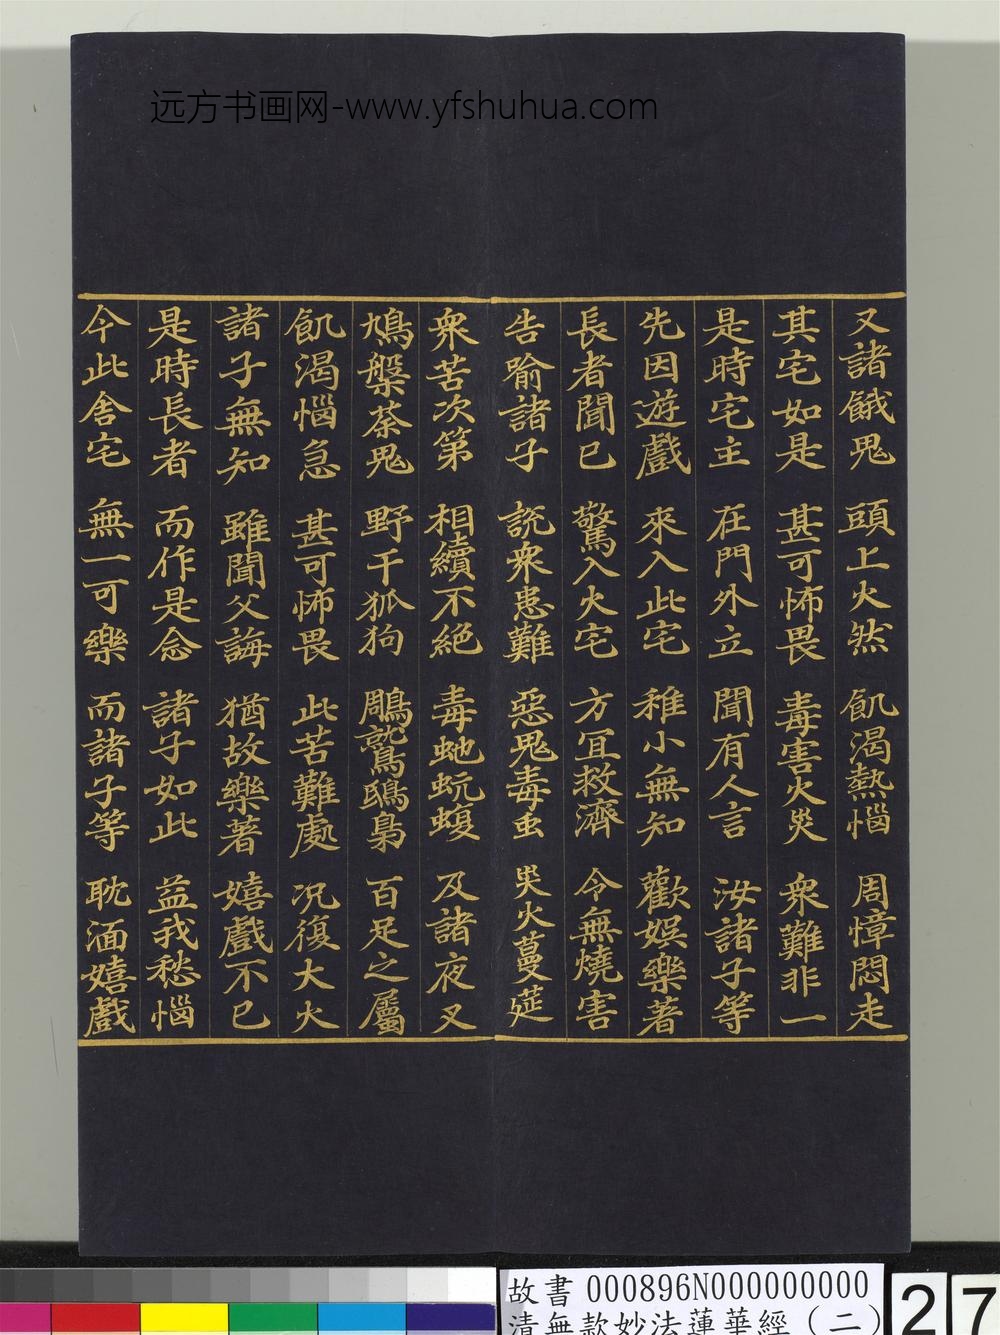 远方书画网-www.yfshuhua.com
又諸餓鬼 頭上火然 飢渴熱惱 周慞悶走
其宅如是 甚可怖畏 毒害火災 衆難非一
是時宅主 在門外立 聞有人言 汝諸子等
先因遊戲 來入此宅 稚小無知 歡娛樂著
長者聞已 驚入火宅 方宜救濟 令無燒害
告喻諸子 說衆患難 惡鬼毒虫 災火蔓莚
衆苦次第 相續不絕 毒虵蚖蝮 及諸夜叉
鳩槃荼鬼 野干狐狗 鵰鷲鴟梟 百足之屬
飢渴惱急 甚可怖畏 此苦難處 況復大火
諸子無知 雖聞父誨 猶故樂著 嬉戲不已
是時長者 而作是念 諸子如此 益我愁惱
今此舍宅 無一可樂 而諸子等 耽湎嬉戲
故書 000896N000000000
清無款妙法蓮華經(二)
27